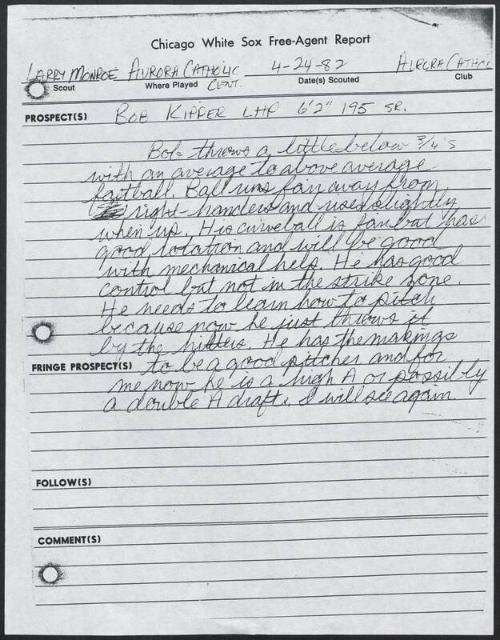 Chicago White Sox Free-Agent Report
LARRY MONROE AURORA CATHOLIC 4-24-82 AURORA CATHOLIC
CENT.
Scout Where Played Date(s) Scouted Club
PROSPECT(S) BOB KIPPER LHP 6'2" 195 SR.
Bob throws a little below 3/4's
with an average to above average
fastball. Ball runs fair away from
right-handers and rises slightly
when up. His curveball is fair but has
good rotation and will be good
with mechanical help. He has good
control but not in the strike zone.
He needs to learn how to pitch
because now he just throws it
by the hitters. He has the makings
FRINGE PROSPECT(S) to be a good pitcher and for
me now he is a high A or possibly
a double A draft. I will see again
FOLLOW(S)
COMMENT(S)